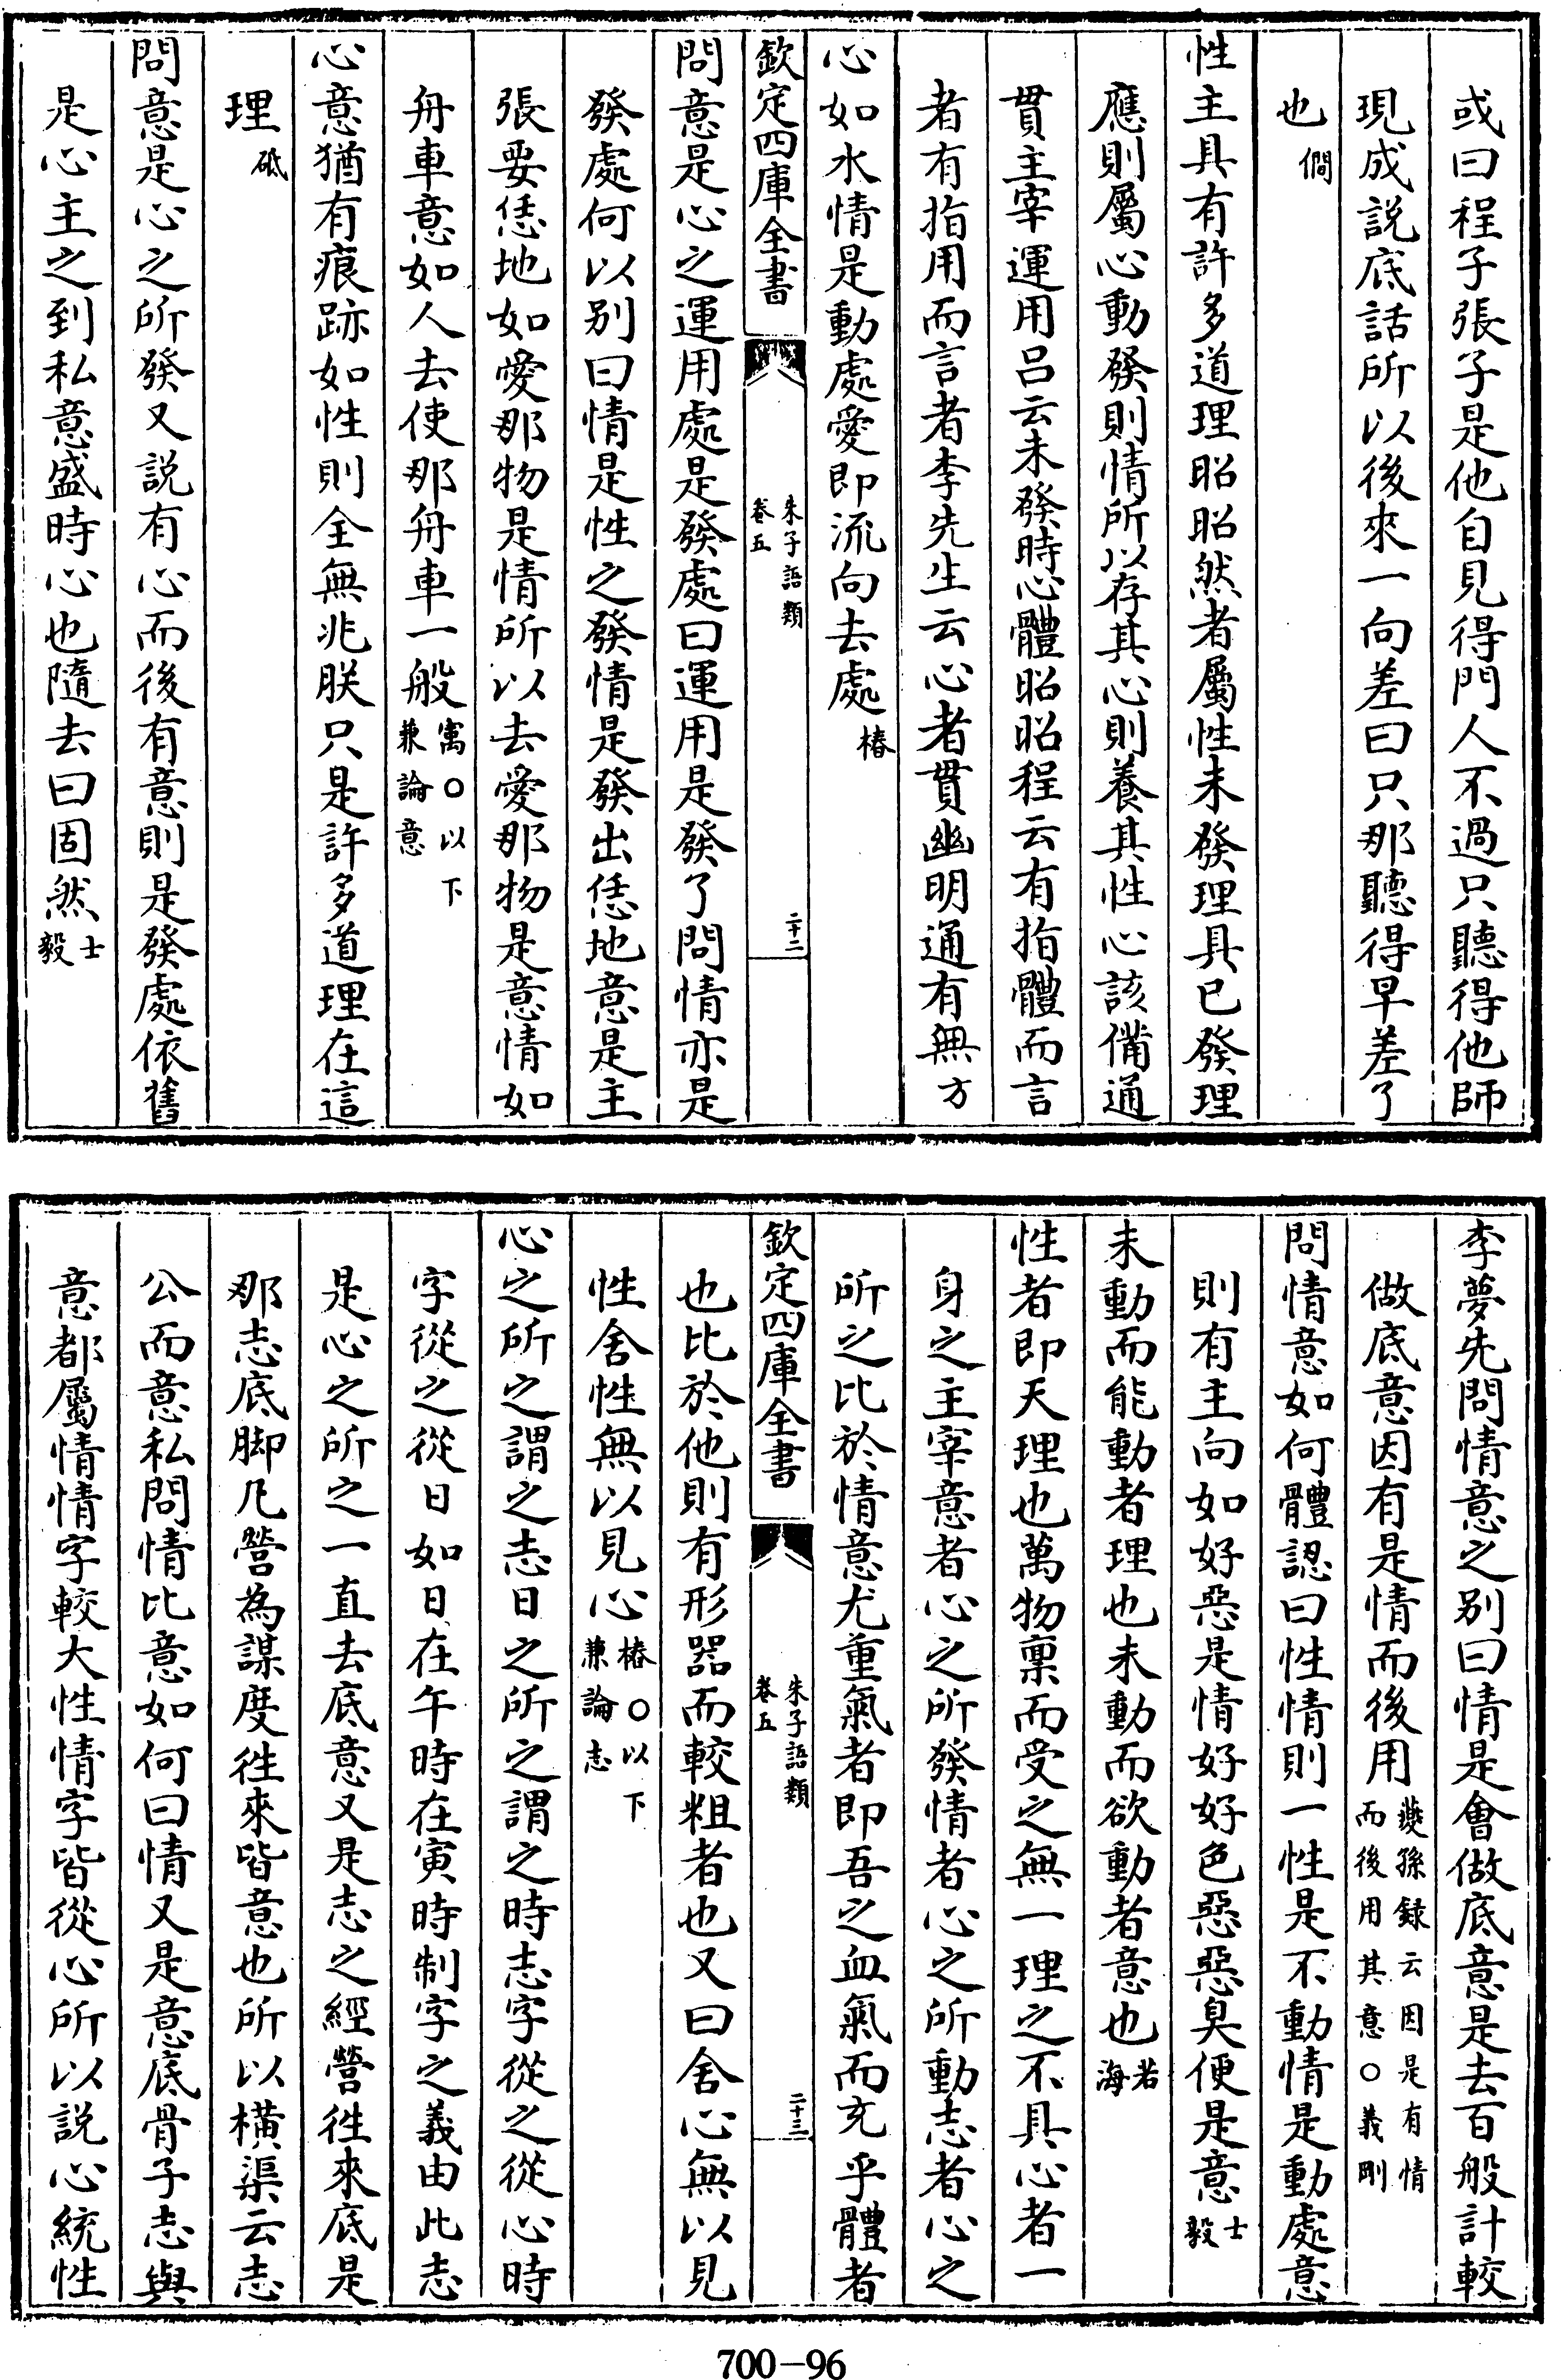 或曰程子張子是他自見得門人不過只聽得他師
現成説底話所以後來一向差曰只那聽得早差了
也僩
性主具有許多道理昭昭然者屬性未發理具已發理
應則屬心動發則情所以存其心則養其性心該備通
貫主宰運用吕云未發時心體昭昭程云有指體而言
者有指用而言者李先生云心者貫幽明通有無方
心如水情是動處愛即流向去處椿
欽定四庫全書
朱子語類
卷五
二十二
問意是心之運用處是發處曰運用是發了問情亦是
發處何以别曰情是性之發情是發出恁地意是主
張要恁地如愛那物是情所以去愛那物是意情如
舟車意如人去使那舟車一般寓〇以下
兼論意
心意猶有痕跡如性則全無兆朕只是許多道理在這
理砥
問意是心之所發又説有心而後有意則是發處依舊
是心主之到私意盛時心也隨去曰固然士
毅
李夢先問情意之别曰情是會做底意是去百般計較
做底意因有是情而後用夔孫録云因是有情
而後用其意〇義剛
問情意如何體認曰性情則一性是不動情是動處意
則有主向如好惡是情好好色惡惡臭便是意士
毅
未動而能動者理也未動而欲動者意也若
海
性者即天理也萬物稟而受之無一理之不具心者一
身之主宰意者心之所發情者心之所動志者心之
所之比於情意尤重氣者即吾之血氣而充乎體者
欽定四庫全書
朱子語類
卷五
二十三
也比於他則有形器而較粗者也又曰舍心無以見
性舍性無以見心椿〇以下
兼論志
心之所之謂之志日之所之謂之時志字從之從心時
字從之從日如日在午時在寅時制字之義由此志
是心之所之一直去底意又是志之經營徃來底是
那志底脚凡營為謀度徃來皆意也所以横渠云志
公而意私問情比意如何曰情又是意底骨子志與
意都屬情情字較大性情字皆從心所以説心統性
700-96